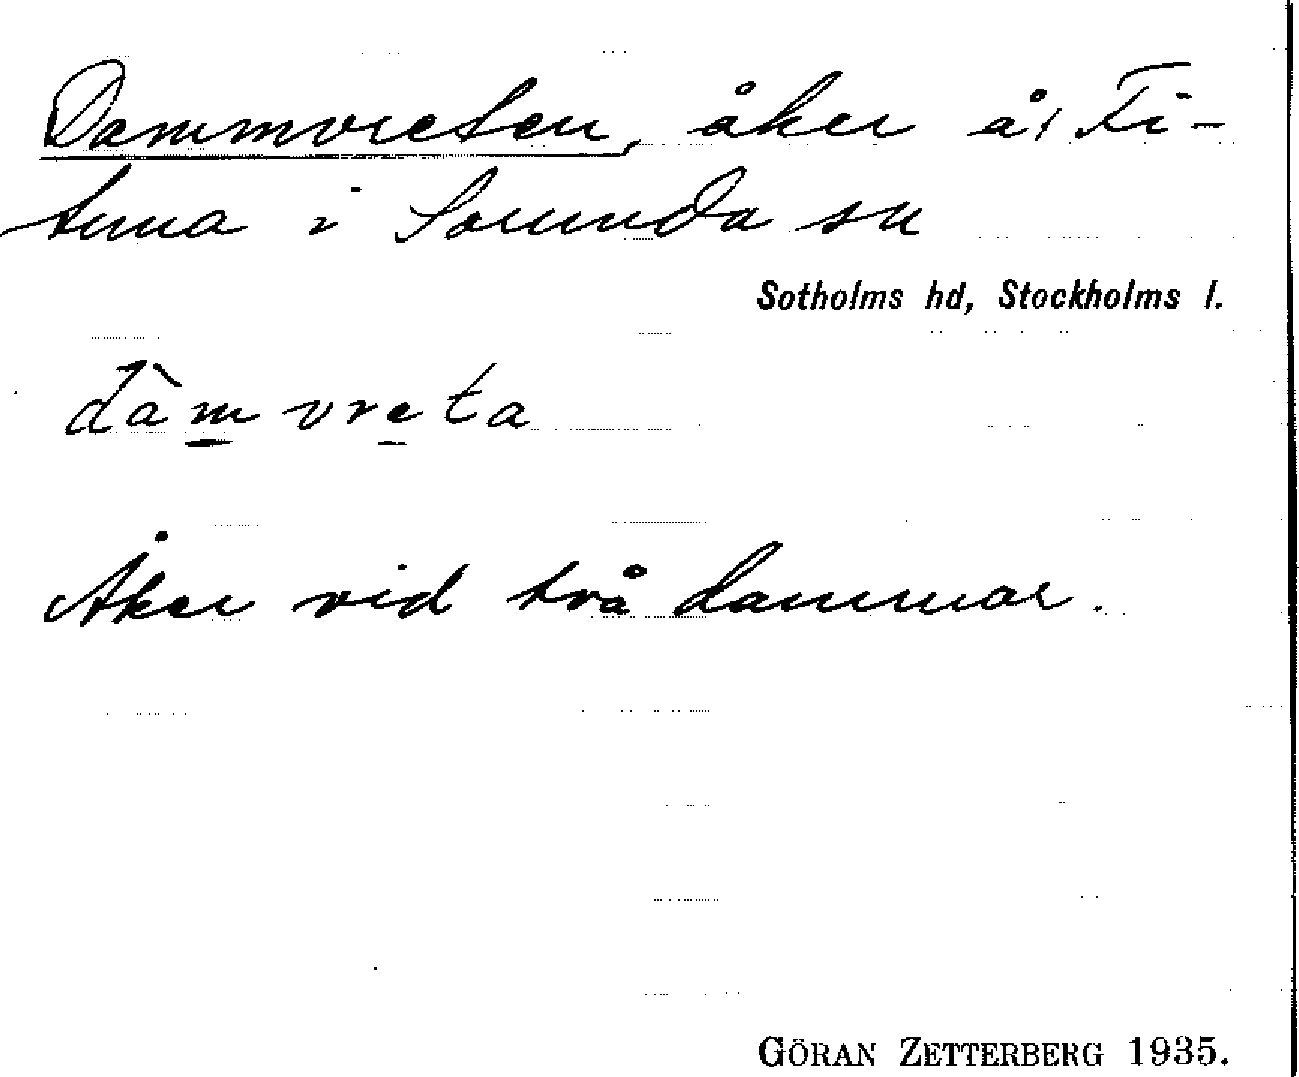 Dammvreten, åker å, Fi-
tuna i Sorunda sn
Sotholms hd, Stockholms l.
dàm vreta
Åker vid två dammar.
GÖRAN ZETTERBERG 1935.